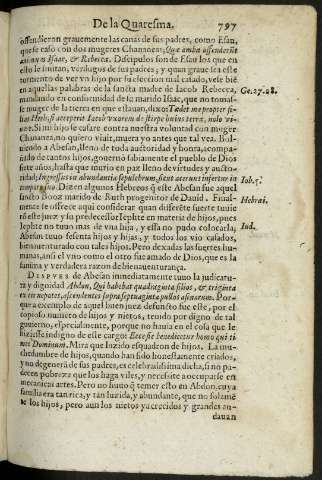 De la Quaresma. 797
offendieron grauemente las canas de sus padres, como Esau,
que se caso con dos mugeres Chananeas; Quæ ambæ offenderunt
animum Isaac, & Rebeccæ. Discipulos son de Esau los que en
esto le imitan, verdugos de sus padres, y quan graue sea este
tormento de ver vn hijo por su eleccion mal casado, vese biē
en aquellas palabras de la santa madre de Iacob Rebecca,
mandando en conformidad de su marido Isac, que no tomas-
se muger de la tierra en que estauan, dixo: Tædet me propter fi-
lias Heth, si acceperit Iacob vxorem de stirpe huius terræ, nolo vi-
uere. Si mi hijo se casare contra nuestra voluntad con muger
Chananea, no quiero viuir, muera yo antes que tal vea. Bol-
uiendo a Abesan, lleno de toda austoridad y honra, acompa-
ñado de tantos hijos, gouernò sabiamente el pueblo de Dios
siete años, hasta que murio en paz lleno de virtudes y austo-
ridad; Ingressus in abundantia sepulchrum, sicut aceruus infertur in
tempore suo. Dizen algunos Hebreos q̃ este Abesan fue aquel
santo Booz marido de Ruth progenitor de Dauid. Final-
mente se ofrece aqui considerar quan diferēte suerte tuuie
rō este juez y su predecessor Iephte en materia de hijos, pues
Iephte no tuuo mas de vna hija, y essa no pudo colocarla,
Abesan tuuo sesenta hijos y hijas, y todos los vio casados,
bienauenturado con tales hijos. Pero dexadas las suertes hu-
manas, ansi el vno como el otro fue amado de Dios, que es la
summa y verdadera razon de bienauenturança.
DESPVES de Abesan immediatamente tuuo la judicatu-
ra y dignidad Abdon, Qui habebat quadraginta filios, & triginta
ex eis nepotes, ascendentes super septuaginta pullos asinarum. Por-
que a exemplo de aquel buen juez defunto fue este, por el
copioso numero de hijos y nietos, tenido por digno de tal
gouierno, especialmente, porque no hauia en el cosa que le
hiziesse indigno de este cargo: Ecce sic benedicetur homo qui ti-
met Dominum. Mira que luzido esquadron de hijos. La mu-
chedumbre de hijos, quando han sido honestamente criados,
y no degenerā de sus padres, es celebrarissima dicha, si no pa-
decen pobreza que los haga viles, y necessite a ocuparse en
mecanicas artes. Pero no huuo q̃ temer esto en Abdon, cuya
familia era tan rica, y tan luzida, y abundante, que no solamē
te los hijos, pero aun los nietos ya crecidos y grandes an-
dauan
Ge.27.28.
Iob.5.
Hebræi.
Iud.